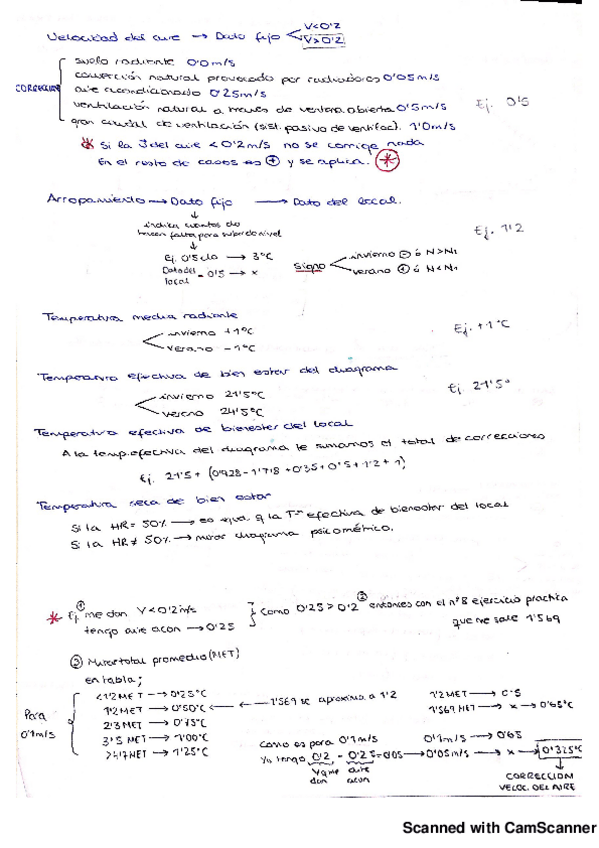 Velocidad del aire → Dato fijo V<0'2
V>0'2
CORRECCIÓN
suelo radiante 0'0 m/s
convección natural provocado por radiadores 0'05 m/s
aire acondicionado 0'25 m/s
ventilación natural a través de ventana abierta 0'5 m/s
gran caudal de ventilación (sist. pasivo de ventilac). 1'0 m/s
Ej. 0'5
* Si la V del aire < 0'2 m/s no se corrige nada
En el resto de casos es + y se aplica. *
Arropamiento → Dato fijo → Dato del local.
indica cuantos clo
hacen falta para subir de nivel
Ej. 0'5 clo → 3°C
Dato del local - 0'5 → x
Signo
invierno - ó N>N1
verano + ó N<N1
Ej. 1'2
Temperatura media radiante
invierno +1°C
verano -1°C
Ej. +1°C
Temperatura efectiva de bien estar del diagrama
invierno 21'5°C
verano 24'5°C
Ej. 21'5°
Temperatura efectiva de bienestar del local
A la temp. efectiva del diagrama le sumamos el total de correcciones
Ej. 21'5 + (0'928 - 1'718 + 0'35 + 0'5 + 1'2 + 1)
Temperatura seca de bien estar
Si la HR = 50% → es igual q la Tª efectiva de bienestar del local
Si la HR ≠ 50% → mirar diagrama psicométrico.
* Ej. ① me dan V<0'2 m/s
tengo aire acon → 0'25
Como 0'25 > 0'2 ② entonces con el nº 8 ejercicio practica
que me sale 1'569
③ Mirar total promedio (MET)
en tabla;
Para
0'1 m/s
<1'2 MET → 0'25°C
1'2 MET → 0'50°C ← 1'569 se aproxima a 1'2
2'3 MET → 0'75°C
3'5 MET → 1'00°C
>4'7 MET → 1'25°C
1'2 MET → 0'5
1'569 MET → x → 0'65°C
Como es para 0'1 m/s 0'1 m/s → 0'65
Yo tengo 0'2 - 0'25 = 0'05 → 0'05 m/s → x → 0'325°C
V que dan
aire acon
CORRECCION
VELOC. DEL AIRE
Scanned with CamScanner